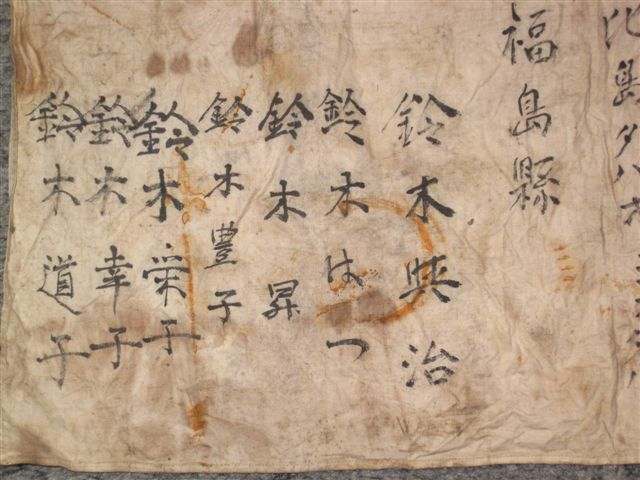 比島タバオ
福島縣
鈴木典治
鈴木はつ
鈴木昇
鈴木豊子
鈴木栄子
鈴木幸子
鈴木道子